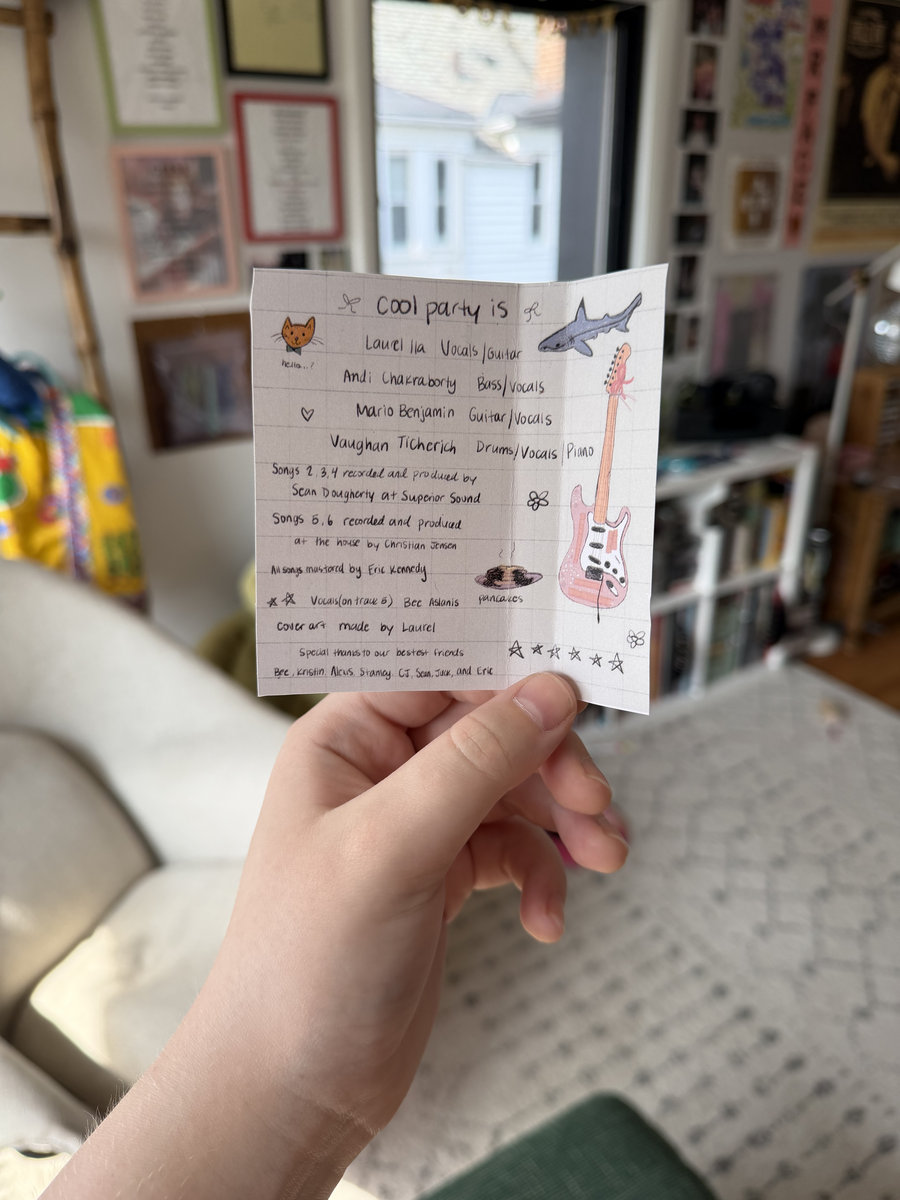 Cool party is
Laurel Ila Vocals/Guitar
hello...?
Andi Chakraborty Bass/Vocals
Mario Benjamin Guitar/Vocals
Vaughan Ticherich Drums/Vocals/Piano
Songs 2,3,4 recorded and produced by
Sean Dougherty at Superior Sound
Songs 5,6 recorded and produced
at the house by Christian Jensen
All songs mastered by Eric Kennedy
pancakes
Vocals (on track 5) Bee Aslanis
Cover art made by Laurel
Special thanks to our bestest friends
Bee, Kristin, Alexis, Stamey, CJ, Sean, Jack, and Eric